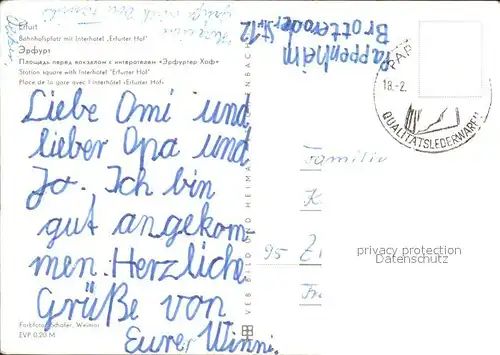 Erfurt
Bahnhofsplatz mit Interhotel "Erfurter Hof"
Эрфурт
Площадь перед вокзалом с интеротелем «Эрфуртер Хоф»
Station square with Interhotel "Erfurter Hof"
Place de la gare avec l'Interhotel «Erfurter Hof»
Liebe Omi und
lieber Opa und
Jo, Ich bin
gut angekom-
men. Herzliche
Grüße von
Eure Winni.
Farbfoto: Schäfer, Weimar
EVP 0,20 M
VEB BILD UND HEIMAT
Rappenheim
Brotteroder Str. 12
18.-2.
QUALITÄTSLEDERWAREN
Familie
K
95 Z
privacy protection
Datenschutz
Fr